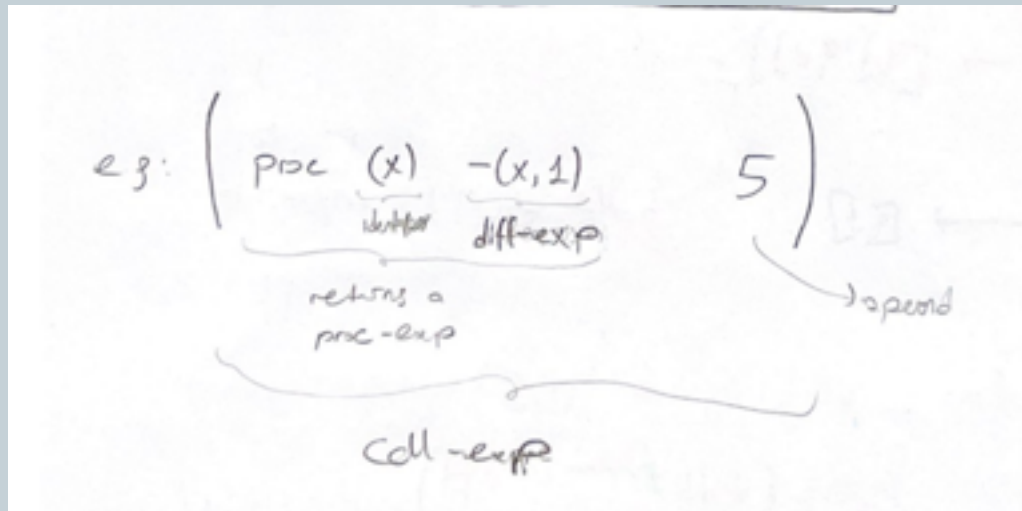 eg: ( proc (x) -(x,1) 5 )
identifier
diff-exp
returns a
proc-exp
operand
call-exp